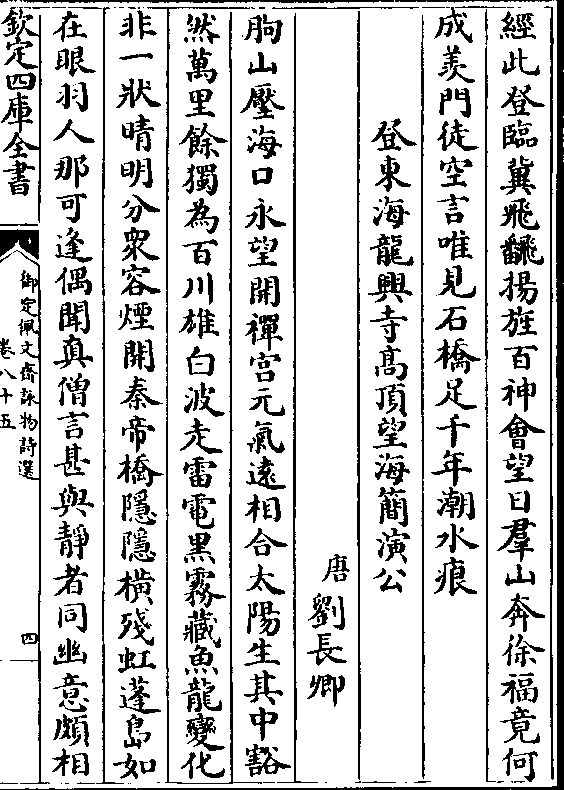 經此登臨冀飛飜揚旌百神會望日羣山奔徐福竟何
成羨門徒空言唯見石橋足千年潮水痕
登東海龍興寺高頂望海簡演公
唐劉長卿
朐山壓海口永望開禪宫元氣遠相合太陽生其中豁
然萬里餘獨為百川雄白波走雷電黒霧藏魚龍變化
非一狀晴明分衆容煙開秦帝橋隱隱橫殘虹蓬島如
在眼羽人那可逢偶聞真僧言甚與靜者同幽意頗相
欽定四庫全書
御定佩文齋詠物詩選
卷八十五
四